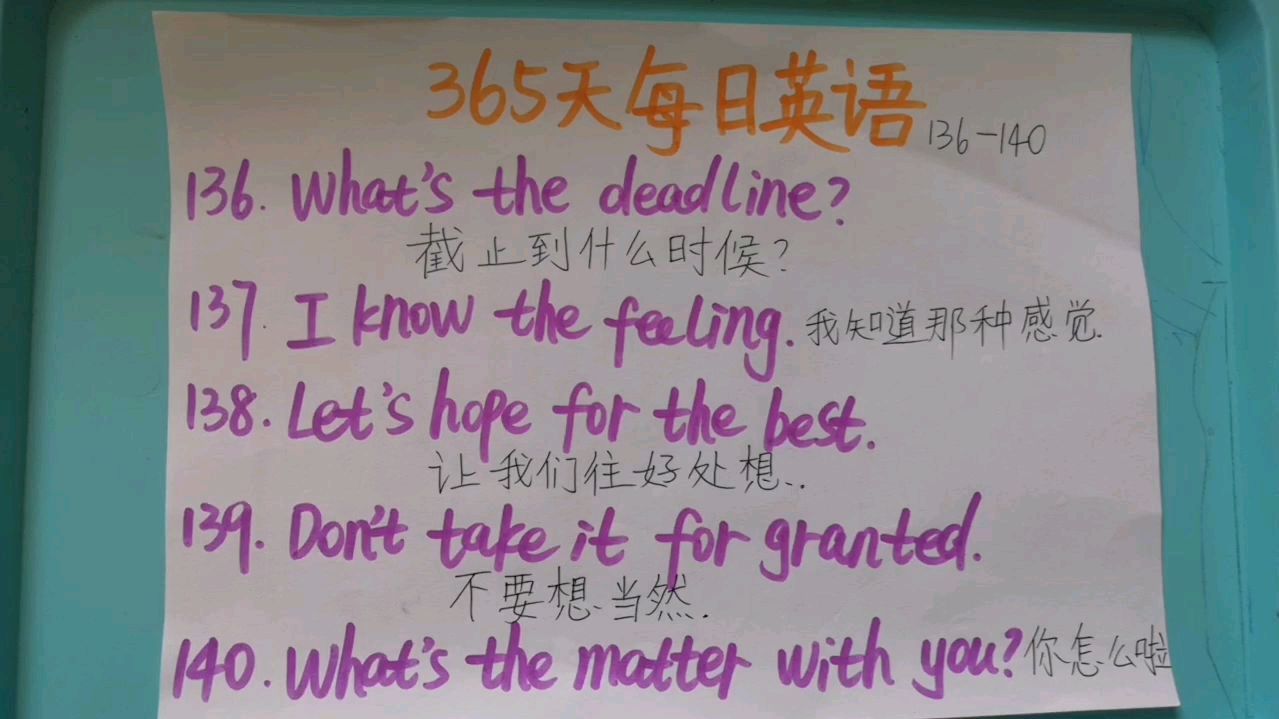 365天每日英语 136-140
136. What's the deadline?
截止到什么时候?
137. I know the feeling. 我知道那种感觉.
138. Let's hope for the best.
让我们往好处想..
139. Don't take it for granted.
不要想当然.
140. What's the matter with you? 你怎么啦